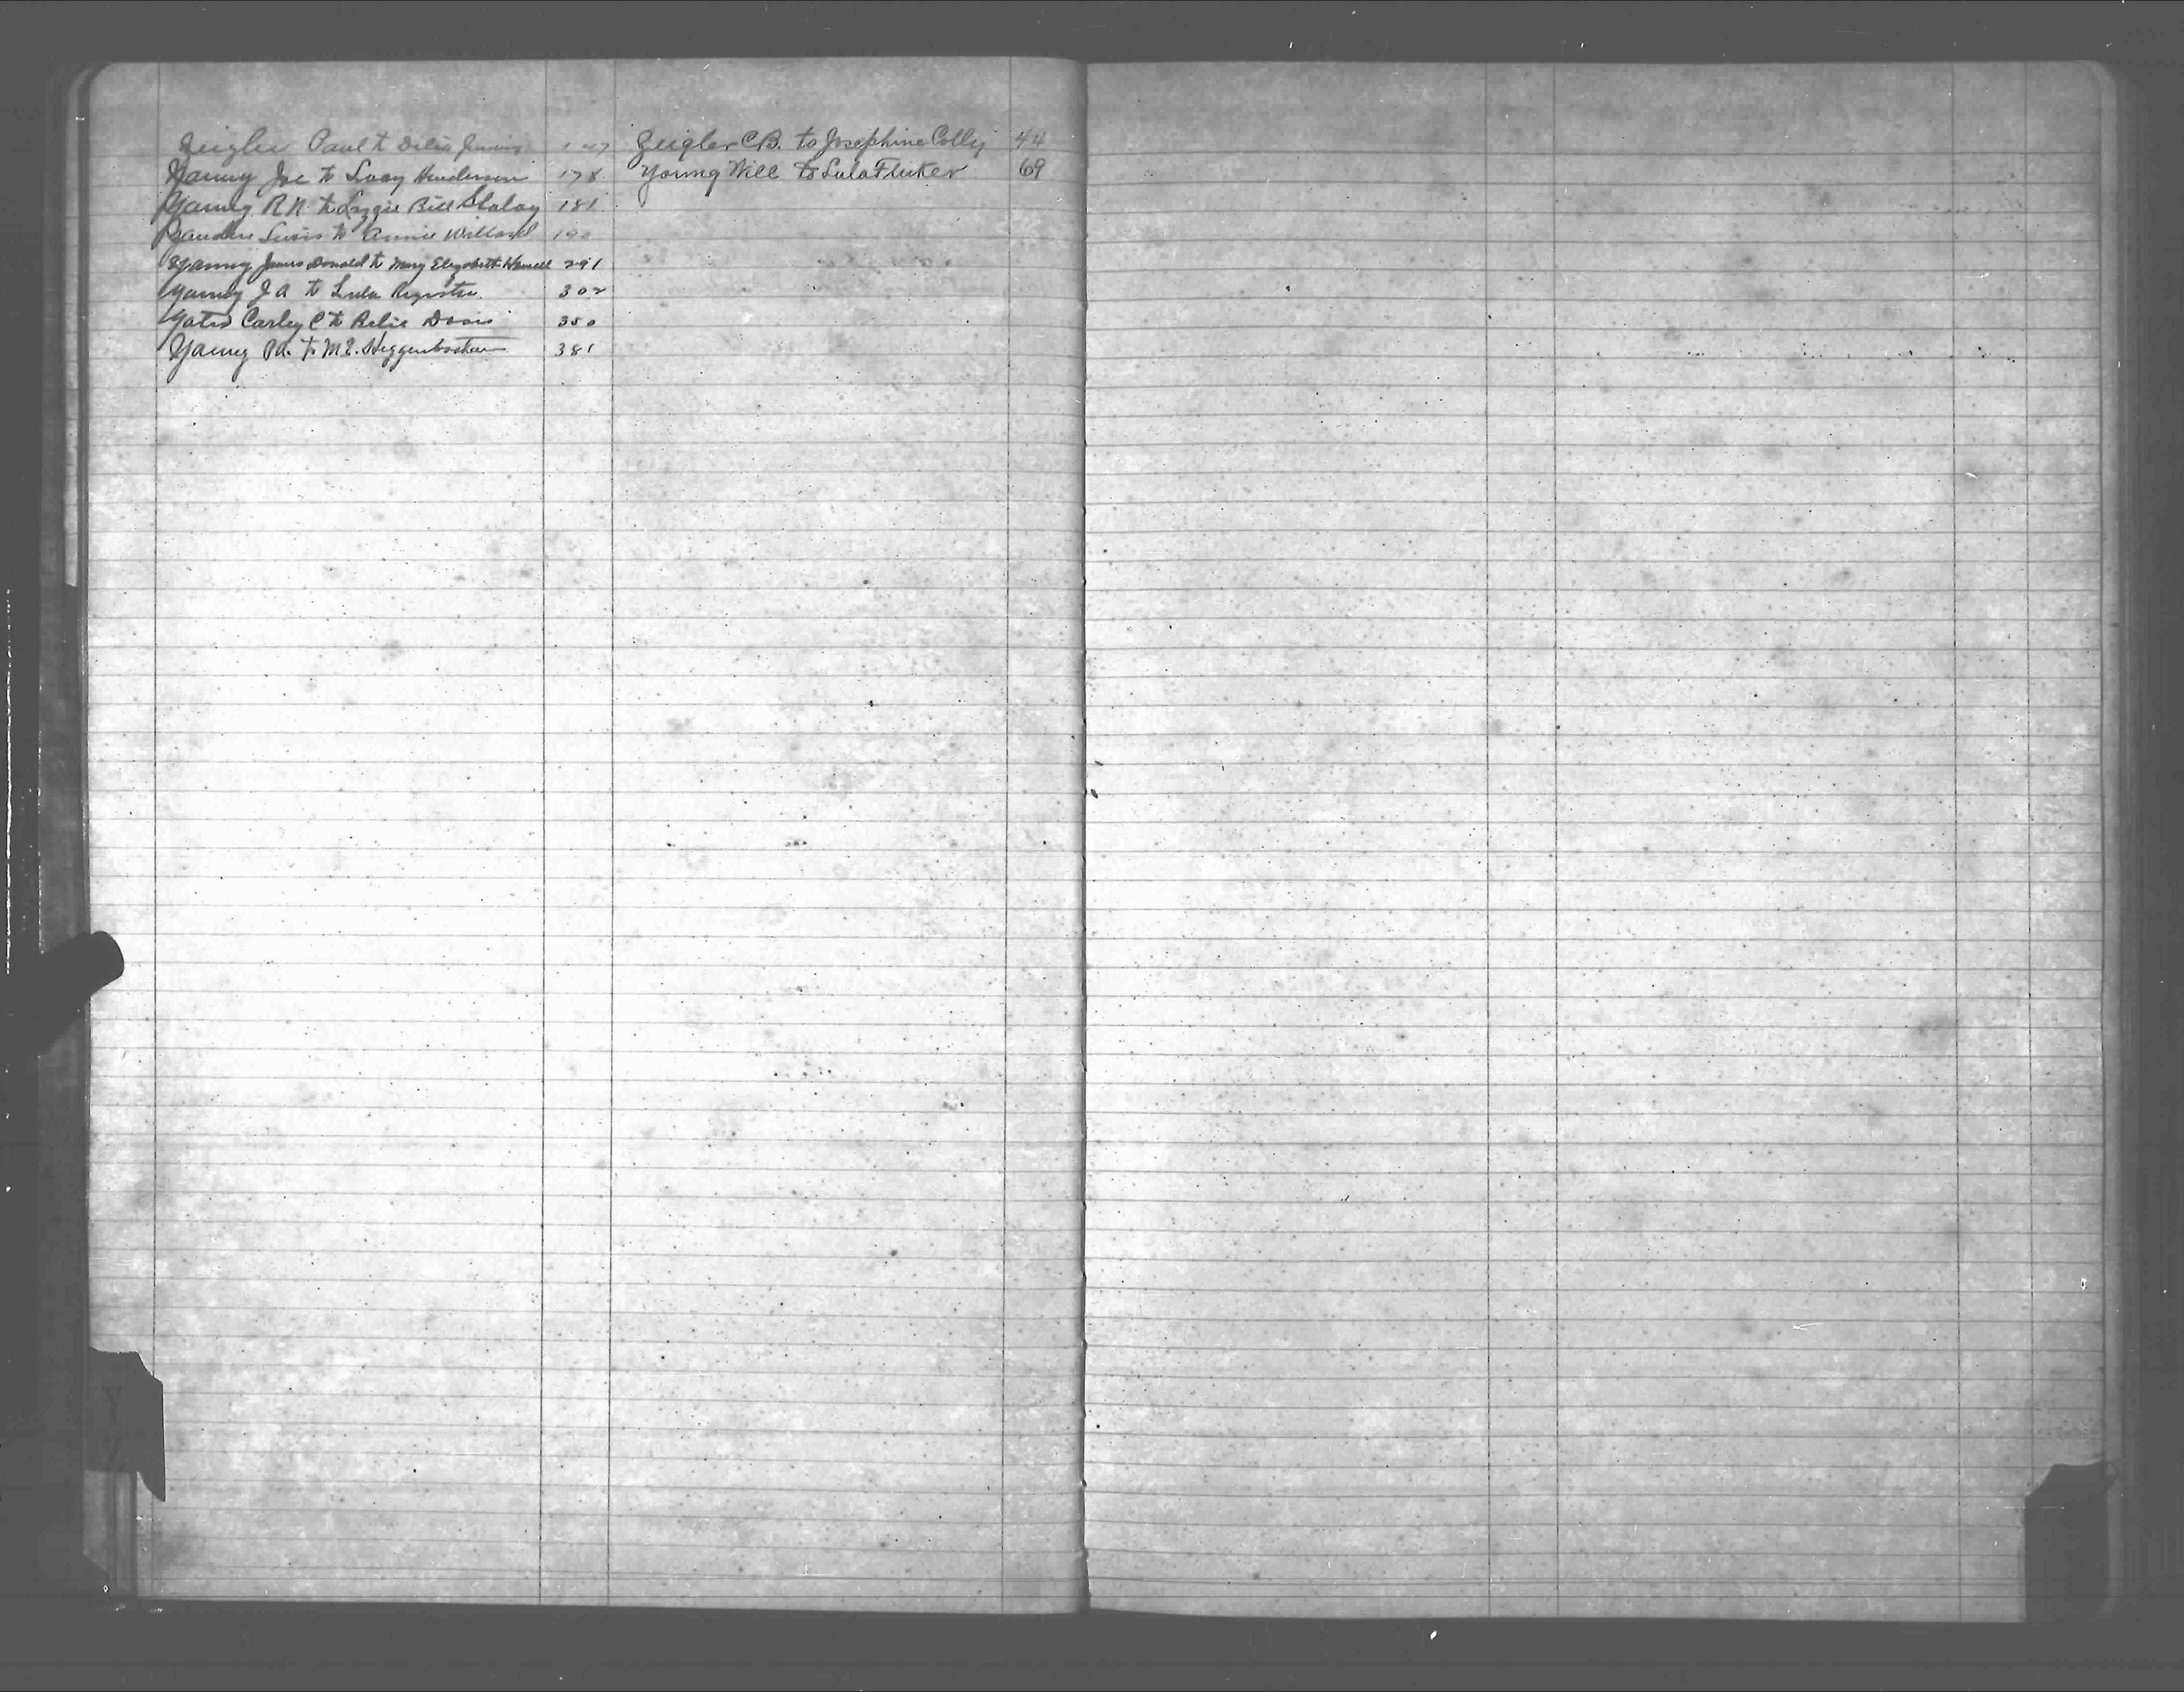 Zeigler Paul to Delia
Young Joe to Lucy Henderson 178
Young R N to Lizzie Bell Slalay 181
Lewis to Annie Willard 190
Young James Donald to Mary Elizabeth 291
Young J A to Lula Register 302
Yates Carley C to Belie Davis 350
Young to M E. Higgenbotham 381
Zeigler C B. to Josephine Colly 44
Young Will to Lula Fluker 69